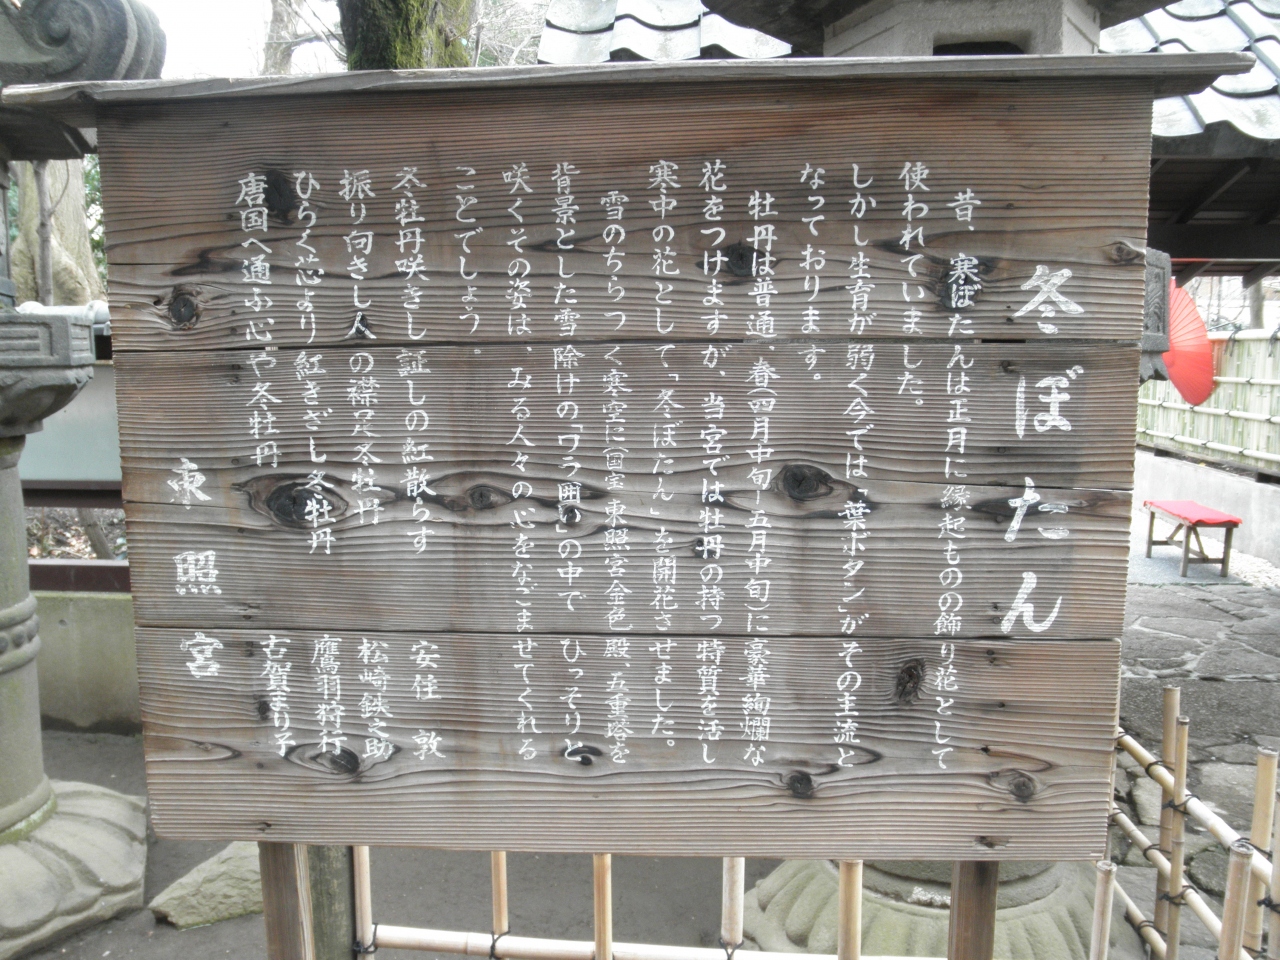 冬ぼたん
昔、寒ぼたんは正月に縁起ものの飾り花として
使われていました。
しかし生育が弱く今では「葉ボタン」がその主流と
なっております。
牡丹は普通、春(四月中旬-五月中旬)に豪華絢爛な
花をつけますが、当宮では牡丹の持つ特質を活し
寒中の花として「冬ぼたん」を開花させました。
雪のちらつく寒空に(国宝東照宮金色殿、五重塔を
背景とした雪除けの「ワラ囲い」の中でひっそりと
咲くその姿は、みる人々の心をなごませてくれる
ことでしょう。
冬牡丹咲きし証しの紅散らす 安住敦
振り向きし人の襟足冬牡丹 松崎鉄之助
ひらく芯より紅きざし冬牡丹 鷹羽狩行
唐国へ通ふ心や冬牡丹 古賀まり子
東照宮